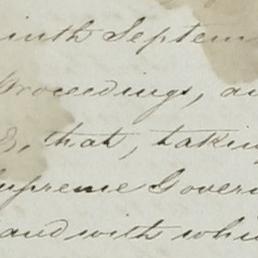 ninth Septem
Proceedings, an
that, taking
Supreme Govern
and with whi